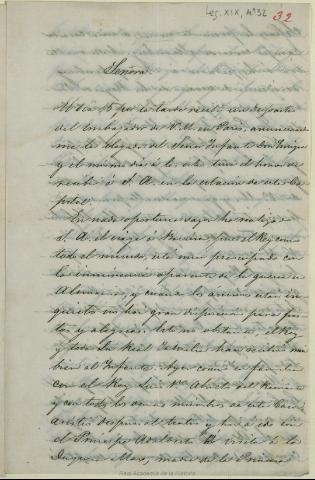 Leg. XIX, nº 32
32
Señora
El dia 5 por la tarde recibí un despacho
del Embajador de V. M. en Paris, anunciando
me la llegada del Señor Infante Don Enrique
y el mismo dia á las ocho tuve el honor de
recibir á S. A. en la estacion de esta Ca
pital.
En modo oportuno
S. A. el viaje á Baviera, pues el Rey como
todo el mundo, está muy preocupado con
la inminencia aparente de la guerra en
Alemania, y cuando los ánimos están in
quietos no hay gran disposicion para fies
tas y alegrias. Esto no obstante el Rey
y toda la Real Familia han recibido muy
bien al Infante. Ayer comió en familia
con el Rey Luis 1º Abuelo del Reinante
y con todos los demas miembros de esta Casa.
Asistió despues al teatro y hoy ha ido con
el Principe Adalberto á visitar á la
Duquesa Max, madre de la
Real Academia de la Historia